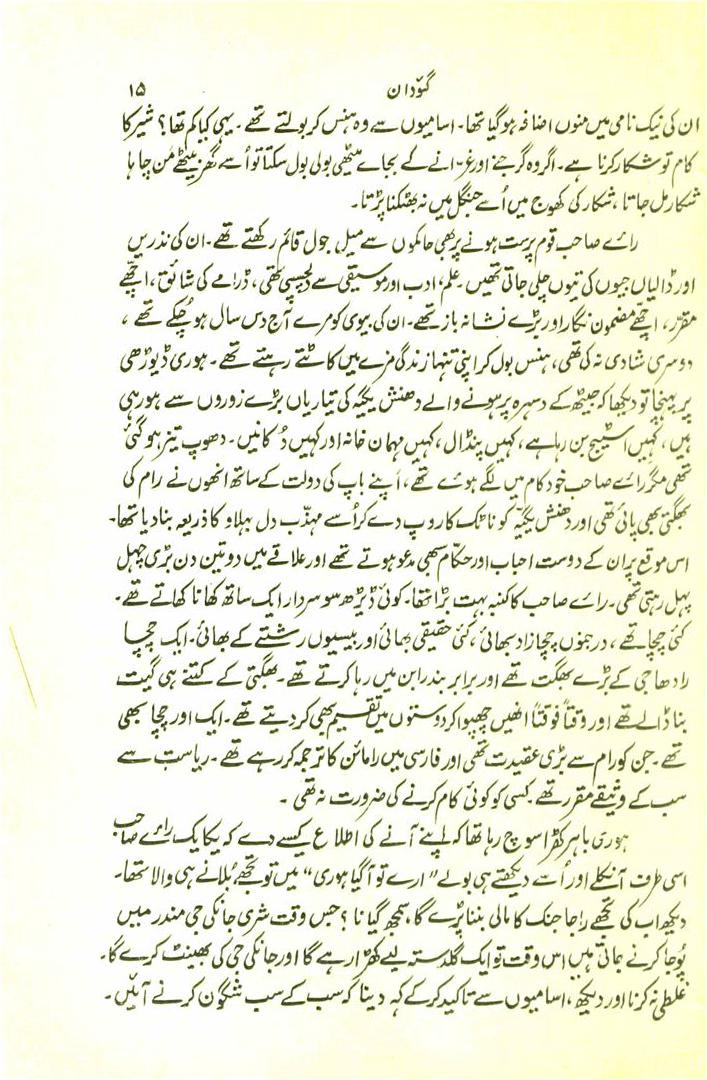 گئودان
۱۵
ان کی نیک نامی میں منوں اضافہ ہو گیا تھا۔ اسامیوں سے وہ ہنس کر بولتے تھے۔ یہی کیا کم تھا؟ شیر کا
کام تو شکار کرنا ہے۔ اگر وہ گرجنے اور غرّانے کے بجاے میٹھی بولی بول سکتا تو اُسے گھر بیٹھے من چاہا
شکار مل جاتا، شکار کی کھوج میں اُسے جنگل میں نہ بھٹکنا پڑتا۔
راے صاحب قوم پرست ہونے پر بھی حاکموں سے میل جول قائم رکھتے تھے۔ ان کی نذریں
اور ڈالیاں جیوں کی تیوں چلی جاتی تھیں۔ علم، ادب اور موسیقی سے دلچسپی تھی، ڈرامے کی شائق، اچھے
مقرّر، اچھے مضمون نگار اور بڑے نشانہ باز تھے۔ ان کی بیوی کو مرے آج دس سال ہو چکے تھے،
دوسری شادی نہ کی تھی، ہنس بول کر اپنی تنہا زندگی مزے میں کاٹتے رہتے تھے۔ ہوری ڈیوڑھی
پر پہنچا تو دیکھا کہ جیٹھ کے دسہرہ پر ہونے والے دھنش یگیّہ کی تیاریاں بڑے زوروں سے ہو رہی
ہیں، کہیں اسٹیج بن رہا ہے، کہیں پنڈال، کہیں مہمان خانہ اور کہیں دُکانیں۔ دھوپ تیز ہو گئی
تھی مگر راے صاحب خود کام میں لگے ہوئے تھے، اپنے باپ کی دولت کے ساتھ انھوں نے رام کی
بھگتی بھی پائی تھی اور دھنش یگیّہ کو ناٹک کا روپ دے کر اُسے مہذّب دل بہلاو کا ذریعہ بنا دیا تھا۔
اس موقع پر ان کے دوست احباب اور حکّام سبھی مدعو ہوتے تھے اور علاقے میں دو تین دن بڑی چہل
پہل رہتی تھی۔ راے صاحب کا کنبہ بہت بڑا تھا۔ کوئی ڈیڑھ سو سردار ایک ساتھ کھانا کھاتے تھے۔
کئی چچا تھے، درجنوں چچازاد بھائی، کئی حقیقی بھائی اور بیسیوں رشتے کے بھائی۔ ایک چچا
رادھا جی کے بڑے بھگت تھے اور برابر بندرابن میں رہا کرتے تھے۔ بھگتی کے کتنے ہی گیت
بنا ڈالے تھے اور وقتاً فوقتاً انھیں چھپوا کر دوستوں میں تقسیم بھی کر دیتے تھے۔ ایک اور چچا بھی
تھے۔ جن کو رام سے بڑی عقیدت تھی اور فارسی میں رامائن کا ترجمہ کر رہے تھے۔ ریاست سے
سب کے وثیقے مقرر تھے۔ کسی کو کوئی کام کرنے کی ضرورت نہ تھی۔
ہوری باہر کھڑا سوچ رہا تھا کہ اپنے آنے کی اطلاع کیسے دے کہ یکایک رائے صاحب
اسی طرف آ نکلے اور اُسے دیکھتے ہی بولے "ارے تو آ گیا ہوری" میں تو تجھے بُلانے ہی والا تھا۔
دیکھ اب کی تجھے راجا جنک کا مالی بننا پڑے گا، سمجھ گیا نا؟ جس وقت شری جانکی جی مندر میں
پُوجا کرنے جاتی ہیں اس وقت تو ایک گلدستہ لیے کھڑا رہے گا اور جانکی جی کی بھینٹ کرے گا۔
غلطی نہ کرنا اور دیکھ، اسامیوں سے تاکید کر کے کہہ دینا کہ سب کے سب شگون کرنے آئیں۔